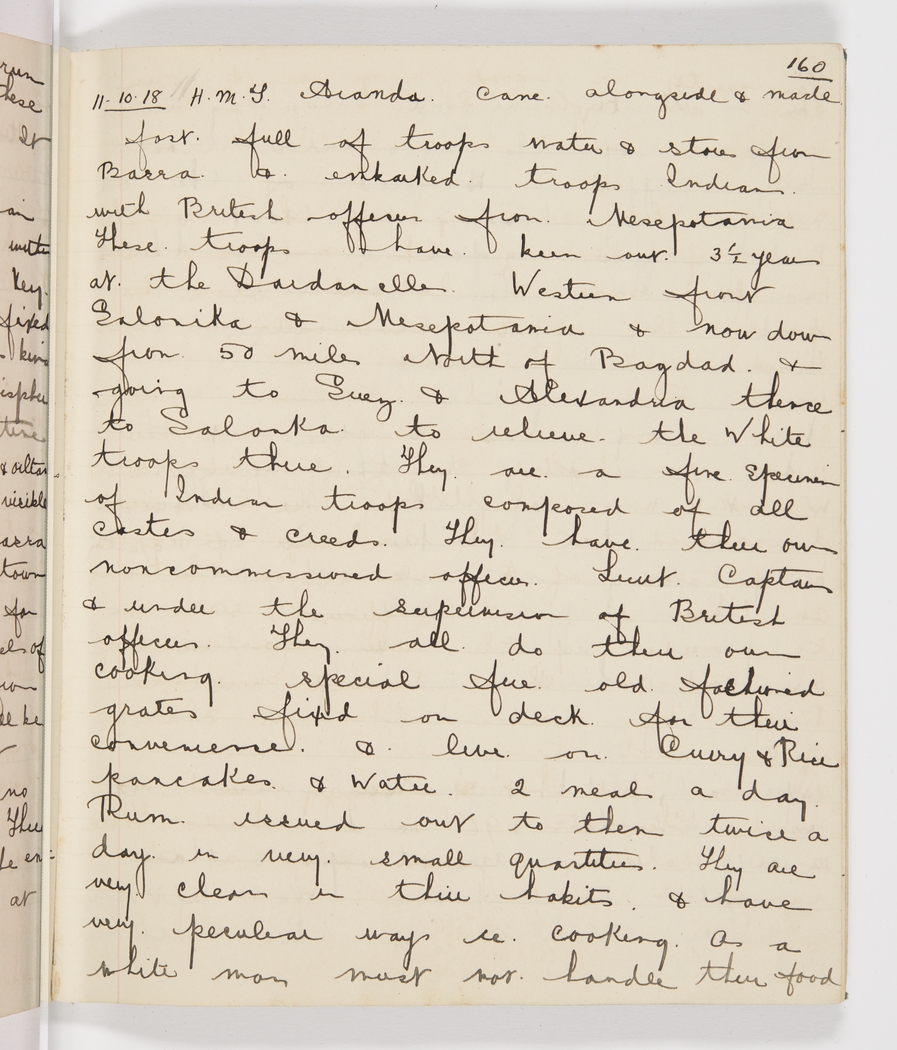 160
11-10-18 H.M.S. Aranda. came alongside & made
fast. full of troops water & stores from
Basra. & embarked. troops Indians.
with British officers from. Mesepotamia
These. troops have. been out. 3½ years
at. the Dardanelles. Western front
Salonika & Mesepotamia & now down
from. 50 miles North of Bagdad. &
going to Suez. & Alexandria thence
to Salonka. to relieve. the White
troops there. They are a fine specimen
of Indian troops composed of all
castes & creeds. They. have. their own
noncommissioned officers. Lieut. Captains
& under the supervision of British
officers. They. all do their own
cooking. special fire. old. fashioned
grates fixed on deck. for their
convenience. & live on. Curry & Rice
pancakes. & Water. 2 meals a day.
Rum. issued out to them twice a
day. in very. small quantities. They are
very clean in their habits. & have
very. peculiar ways ie. cooking. As a
white man must not handle their food
run
these
It
an
key.
fixed
& oilta
visible
asra
town
for
els of
no
at